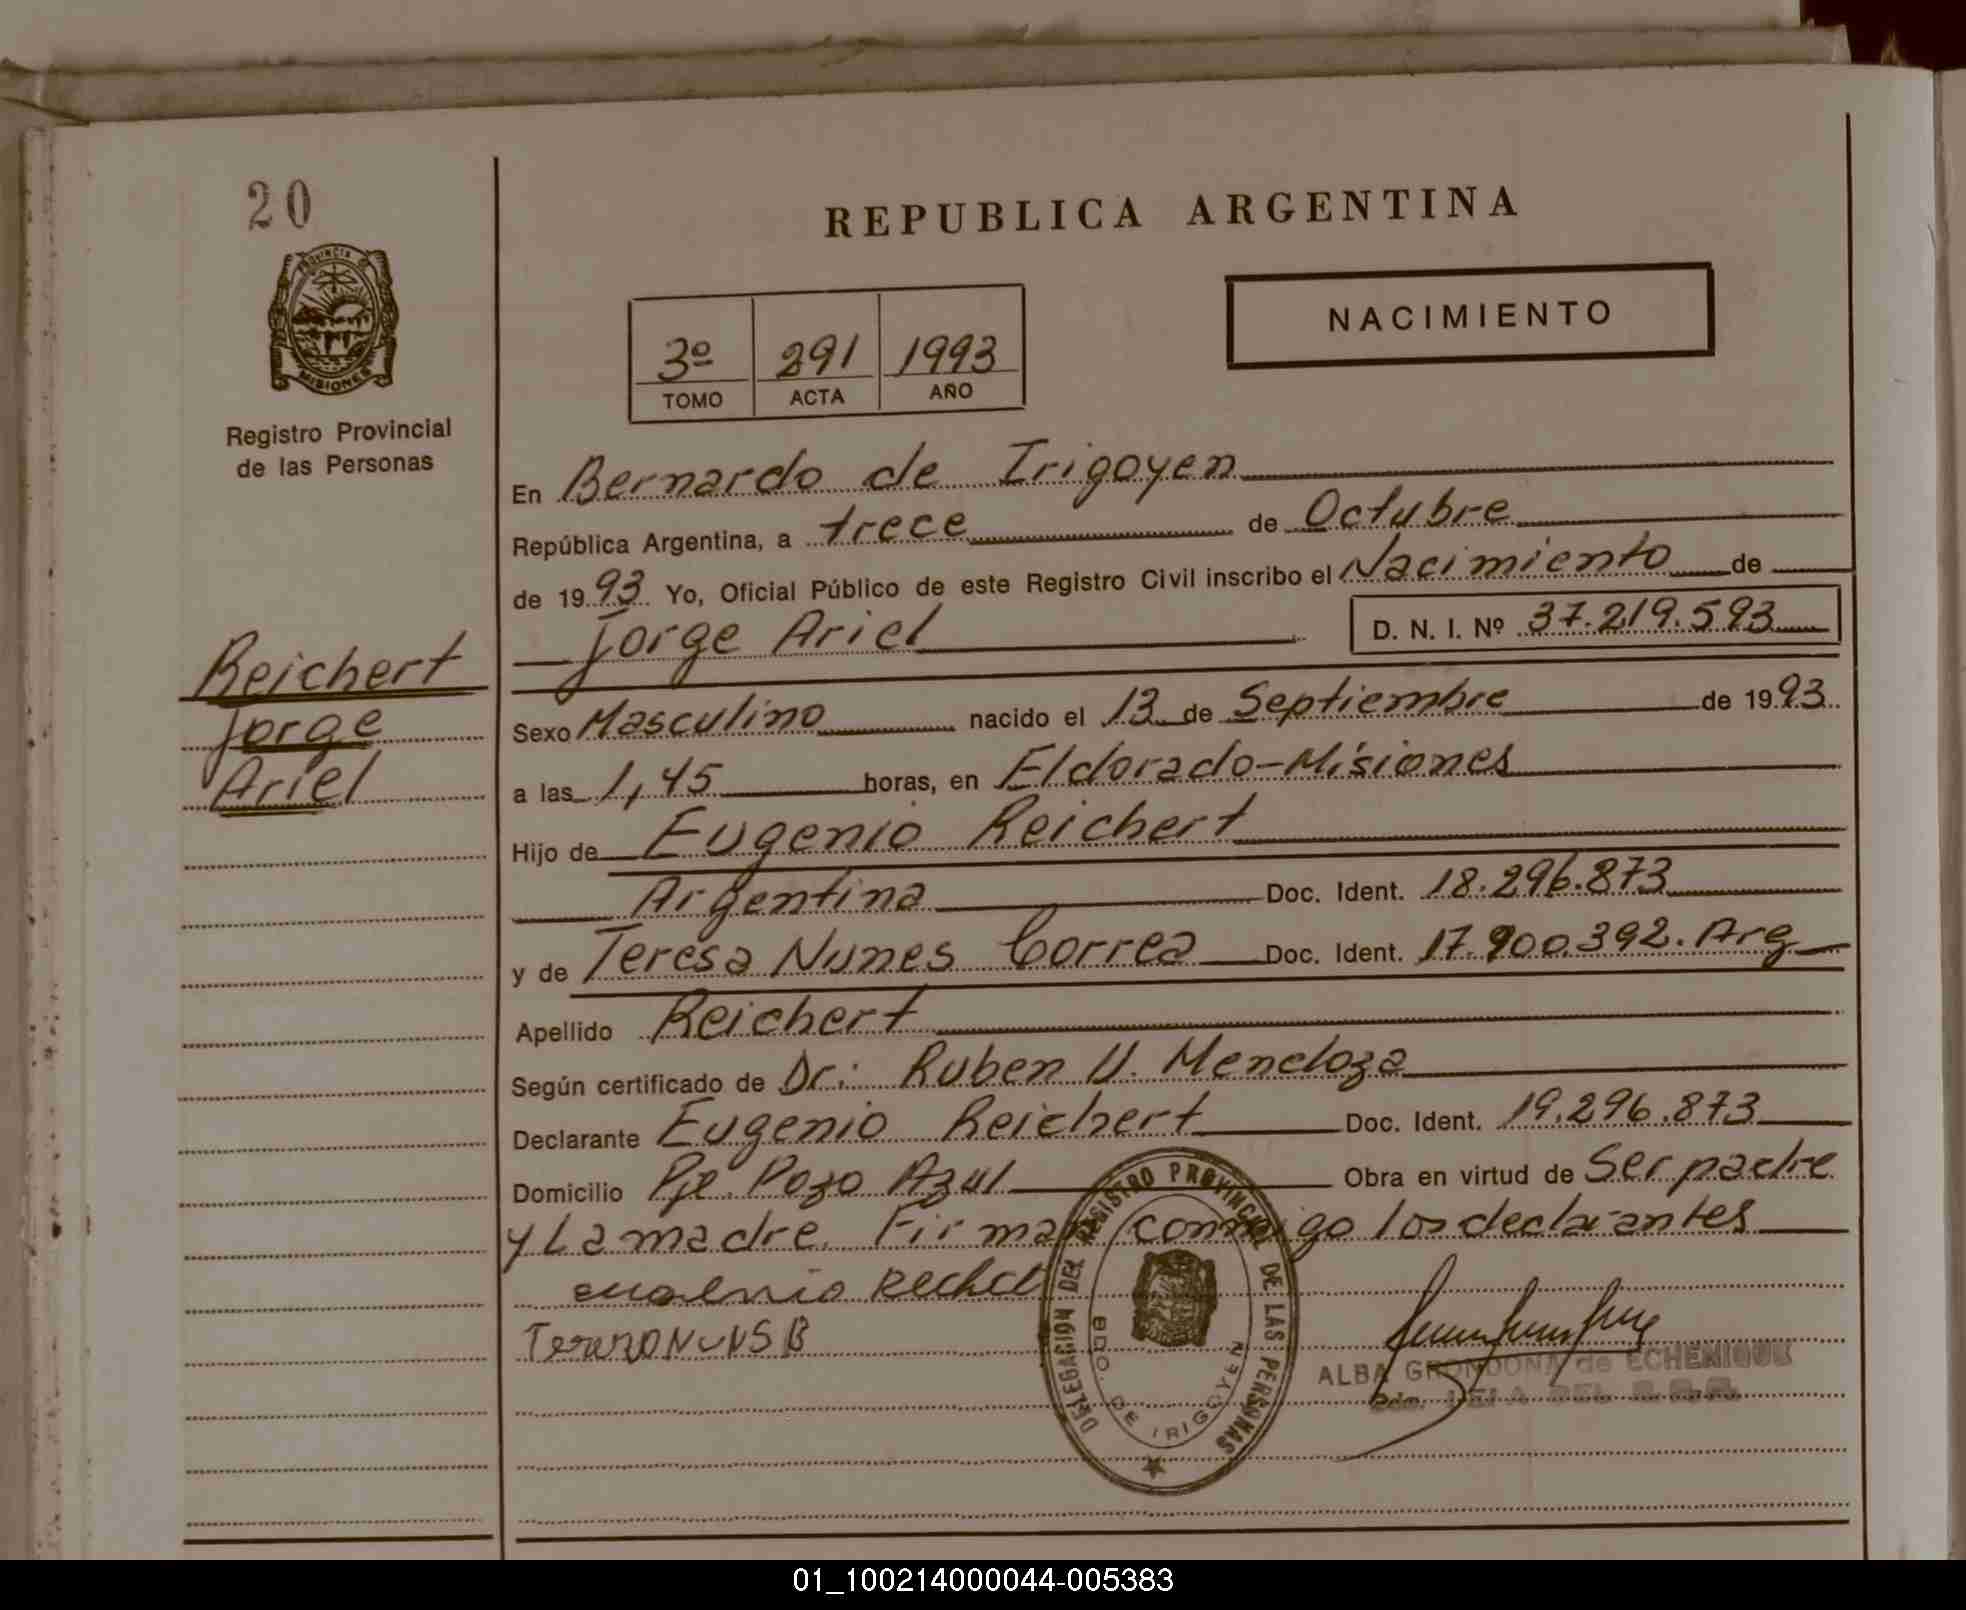 20
PROVINCIA DE
MISIONES
Registro Provincial
de las Personas
Reichert
Jorge
Ariel
REPUBLICA ARGENTINA
NACIMIENTO
3º 291 1993
TOMO ACTA AÑO
En Bernardo de Irigoyen
República Argentina, a trece de Octubre
de 1993 Yo, Oficial Público de este Registro Civil inscribo el Nacimiento de
Jorge Ariel D. N. I. Nº 37.219.593
Sexo Masculino nacido el 13 de Septiembre de 1993
a las 1,45 horas, en Eldorado-Misiones
Hijo de Eugenio Reichert
Argentina Doc. Ident. 18.296.873
y de Teresa Nunes Correa Doc. Ident. 17.900.392. Arg
Apellido Reichert
Según certificado de Dr: Ruben U. Mendoza
Declarante Eugenio Reichert Doc. Ident. 19.296.873
Domicilio Pje. Pozo Azul Obra en virtud de Ser padre
y La madre. Firman conmigo los declarantes
DELEGACION DEL REGISTRO PROVINCIAL DE LAS PERSONAS
BDO. DE IRIGOYEN
ALBA GRONDONA de ECHENIQUE
01_100214000044-005383